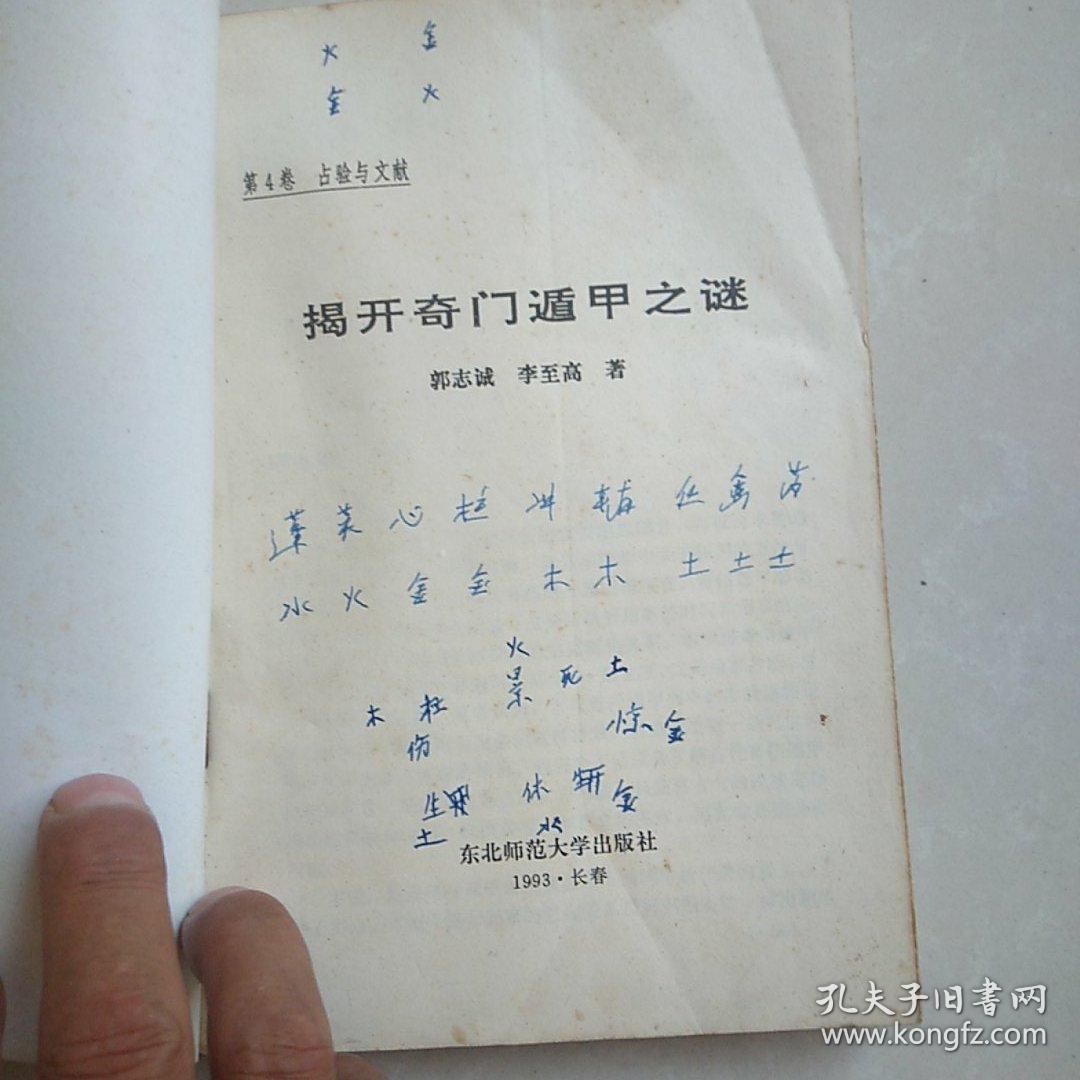 火 金
金 火
第4卷 占验与文献
揭开奇门遁甲之谜
郭志诚 李至高 著
蓬 英 心 柱 冲 辅 任 禽 芮
水 火 金 金 木 木 土 土 土
火
木 杜 景 死 土
伤 惊 金
生 休 开 金
土 水
东北师范大学出版社
1993·长春
孔夫子旧书网
www.kongfz.com